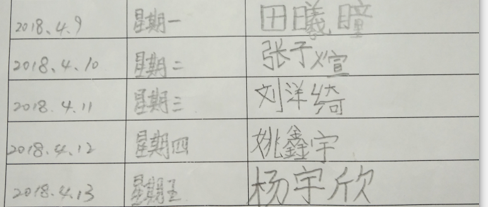 2018.4.9 星期一 田曦瞳
2018.4.10 星期二 张子煊
2018.4.11 星期三 刘洋绮
2018.4.12 星期四 姚鑫宇
2018.4.13 星期五 杨宇欣